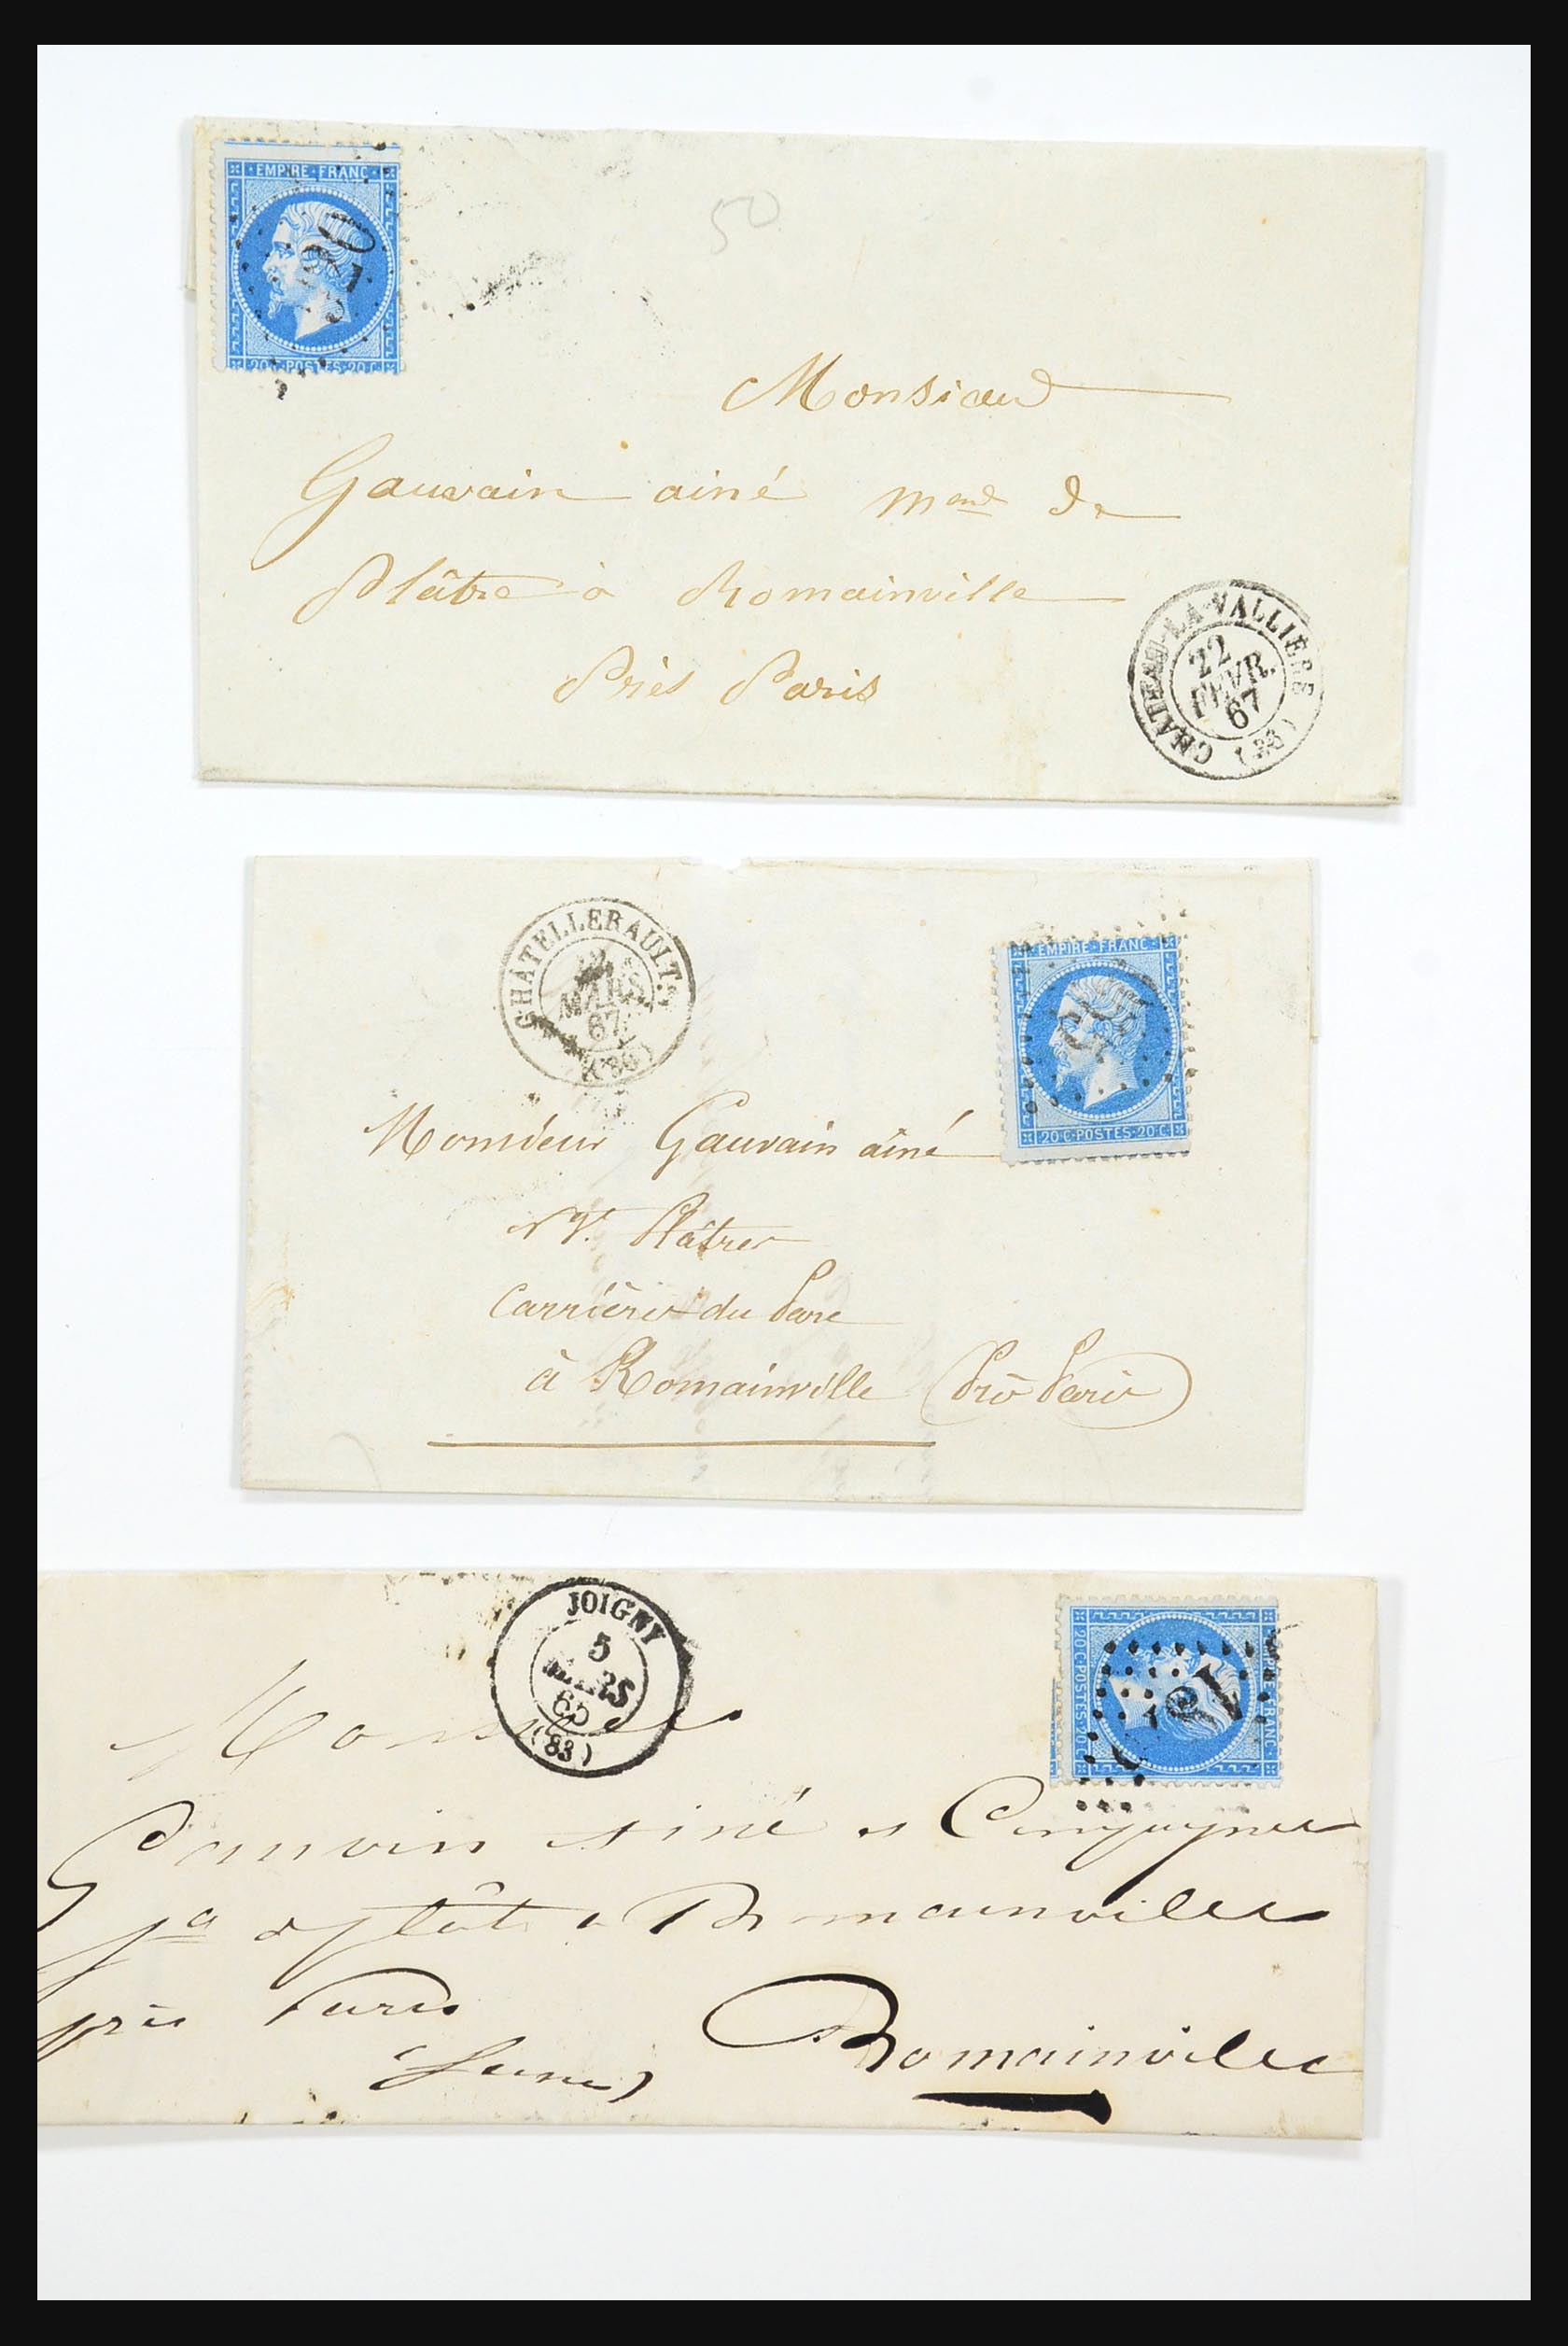 EMPIRE FRANC
20 C POSTES 20 C
50
Monsieur
Gauvain ainé Mand de
Plâtre à Romainville
Près Paris
CHATEAU-LA-VALLIERE
22
FEVR.
67
CHATELLERAULT
MARS
67
(86)
EMPIRE FRANC
20 C POSTES 20 C
Monsieur Gauvain ainé
Plâtres
Carrières du Parc
à Romainville (Près Paris)
JOIGNY
5
MARS
(83)
EMPIRE FRANC
20 C POSTES 20 C
Monsieur
Gauvin ainé et Compagnie
plât a Romainville
près Paris
(Seine)
Romainville